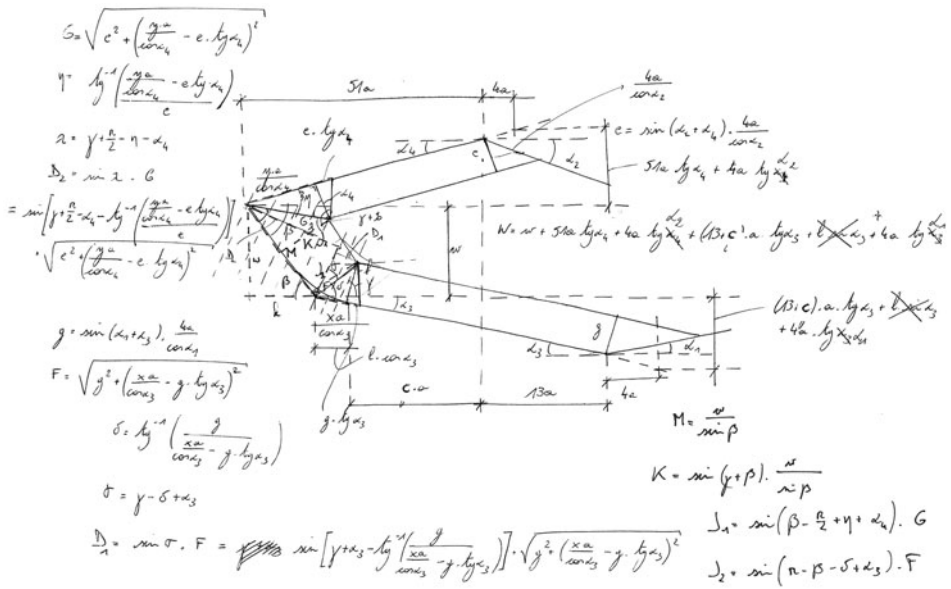 G = √(e² + (y.a/cosα₄ − e.tgα₄)²)
η = tg⁻¹((y.a/cosα₄ − e tgα₄)/e)
λ = γ + π/2 − η − α₄
D₂ = sin λ . G
= sin[γ + π/2 − α₄ − tg⁻¹((y.a/cosα₄ − e tgα₄)/e)]
. √(e² + (y.a/cosα₄ − e.tgα₄)²)
g = sin(α₁+α₃) . 4a/cosα₁
F = √(g² + (xa/cosα₃ − g.tgα₃)²)
δ = tg⁻¹(g/(xa/cosα₃ − g.tgα₃))
σ = γ − δ + α₃
D₁ = sin σ . F = sin[γ + α₃ − tg⁻¹(g/(xa/cosα₃ − g.tgα₃))] . √(g² + (xa/cosα₃ − g.tgα₃)²)
51a
4a
4a/cosα₂
e.tgα₄
α₄
e
α₂
e = sin(α₂+α₄) . 4a/cosα₂
51a tgα₄ + 4a tgα₂
y.a/cosα₄
α₄
η
G
γ+δ
D₁
β
K
M
D₂
w
w
W = w + 51a tgα₄ + 4a tgα₂ + (13+c).a.tgα₃ + 4a tgα₁
β
k
γ
α₃
xa/cosα₃
l.cosα₃
g.tgα₃
g
α₃
α₁
(13+c).a.tgα₃ +
+ 4a.tgα₁
c.a
13a
4a
M = w/sinβ
K = sin(γ+β) . w/sinβ
J₁ = sin(β − π/2 + η + α₄) . G
J₂ = sin(π − β − δ + α₃) . F